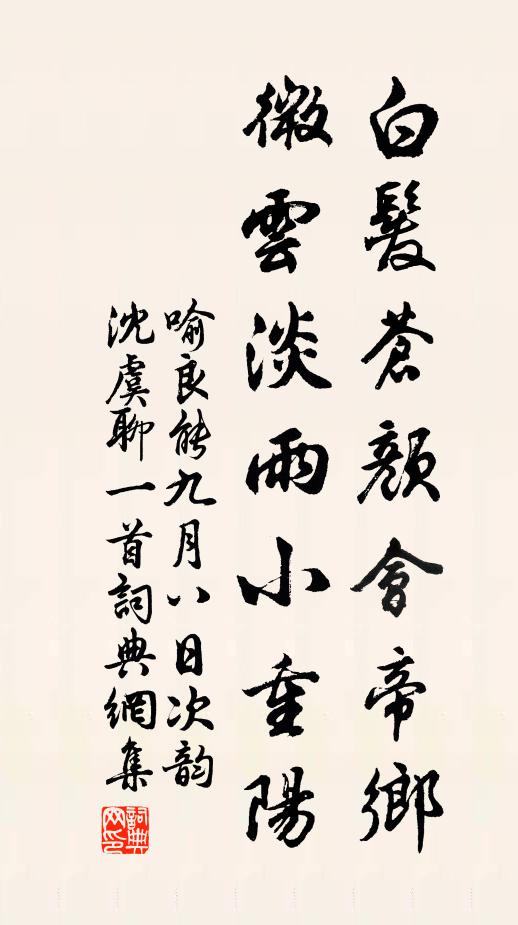 白髮蒼顏會帝鄉
微雲淡雨小重陽
喻良能九月八日次韵
沈虞聊一首詞典網集
詞典網印